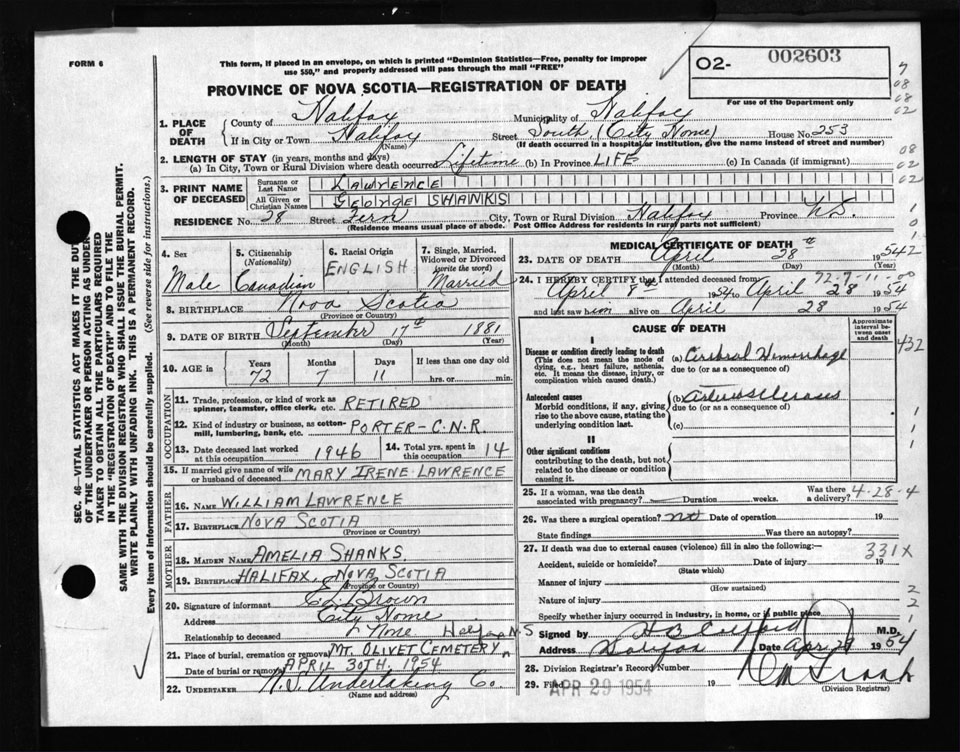 FORM 6
This form, if placed in an envelope, on which is printed "Dominion Statistics—Free, penalty for improper
use $50," and properly addressed will pass through the mail "FREE"
PROVINCE OF NOVA SCOTIA—REGISTRATION OF DEATH
O2- 002603
For use of the Department only
1. PLACE OF DEATH
County of Halifax Municipality of Halifax
If in City or Town Halifax (Name) Street South (City Home) House No. 253
(If death occurred in a hospital or institution, give the name instead of street and number)
2. LENGTH OF STAY (in years, months and days)
(a) In City, Town or Rural Division where death occurred Lifetime (b) In Province LIFE (c) In Canada (if immigrant)
3. PRINT NAME OF DECEASED
Surname or Last Name LAWRENCE
All Given or Christian Names GEORGE SHANKS
RESIDENCE No. 28 Street City, Town or Rural Division Halifax Province N.S.
(Residence means usual place of abode. Post Office Address for residents in rural parts not sufficient)
4. Sex Male
5. Citizenship (Nationality) Canadian
6. Racial Origin ENGLISH
7. Single, Married, Widowed or Divorced (write the word) Married
8. BIRTHPLACE Nova Scotia
(Province or Country)
9. DATE OF BIRTH September 17th 1881
(Month) (Day) (Year)
10. AGE Years 72 Months 7 Days 11 If less than one day old hrs. or min.
OCCUPATION
11. Trade, profession, or kind of work as spinner, teamster, office clerk, etc. RETIRED
12. Kind of industry or business, as cotton-mill, lumbering, bank, etc. PORTER-C.N.R.
13. Date deceased last worked at this occupation 1946
14. Total yrs. spent in this occupation 14
15. If married give name of wife or husband of deceased MARY IRENE LAWRENCE
FATHER
16. NAME WILLIAM LAWRENCE
17. BIRTHPLACE NOVA SCOTIA
(Province or Country)
MOTHER
18. MAIDEN NAME AMELIA SHANKS
19. BIRTHPLACE HALIFAX, NOVA SCOTIA
(Province or Country)
20. Signature of informant Brown
Address City Home
Relationship to deceased
21. Place of burial, cremation or removal MT. OLIVET CEMETERY
Date of burial or removal APRIL 30TH. 1954
22. UNDERTAKER N.S. Undertaking Co.
(Name and address)
MEDICAL CERTIFICATE OF DEATH
23. DATE OF DEATH April 28th 1954
(Month) (Day) (Year)
72-7-11-00
24. I HEREBY CERTIFY that I attended deceased from
April 8th 1954 to April 28 1954
and last saw him alive on April 28 1954
CAUSE OF DEATH
Approximate interval between onset and death
I
Disease or condition directly leading to death
(This does not mean the mode of dying, e.g., heart failure, asthenia, etc. It means the disease, injury, or complication which caused death.)
(a) Cerebral Hemorrhage
due to (or as a consequence of)
Antecedent causes
Morbid conditions, if any, giving rise to the above cause, stating the underlying condition last.
(b) arteriosclerosis
due to (or as a consequence of)
(c)
II
Other significant conditions
contributing to the death, but not related to the disease or condition causing it.
25. If a woman, was the death associated with pregnancy? Duration weeks. Was there a delivery? 4-28-4
26. Was there a surgical operation? no Date of operation 19
State findings Was there an autopsy?
27. If death was due to external causes (violence) fill in also the following: 331X
Accident, suicide or homicide? Date of injury 19
(State which)
Manner of injury
(How sustained)
Nature of injury
Specify whether injury occurred in industry, in home, or in public place
Signed by M.D.
Address Halifax Date Apr. 29 1954
28. Division Registrar's Record Number
29. Filed APR 29 1954 19
(Division Registrar)
SEC. 46—VITAL STATISTICS ACT MAKES IT THE DUTY
OF THE UNDERTAKER OR PERSON ACTING AS UNDER-
TAKER TO OBTAIN ALL THE PARTICULARS REQUIRED
IN THE "REGISTRATION OF DEATH" AND TO FILE THE
SAME WITH THE DIVISION REGISTRAR WHO SHALL ISSUE THE BURIAL PERMIT.
WRITE PLAINLY WITH UNFADING INK. THIS IS A PERMANENT RECORD.
Every item of information should be carefully supplied. (See reverse side for instructions.)